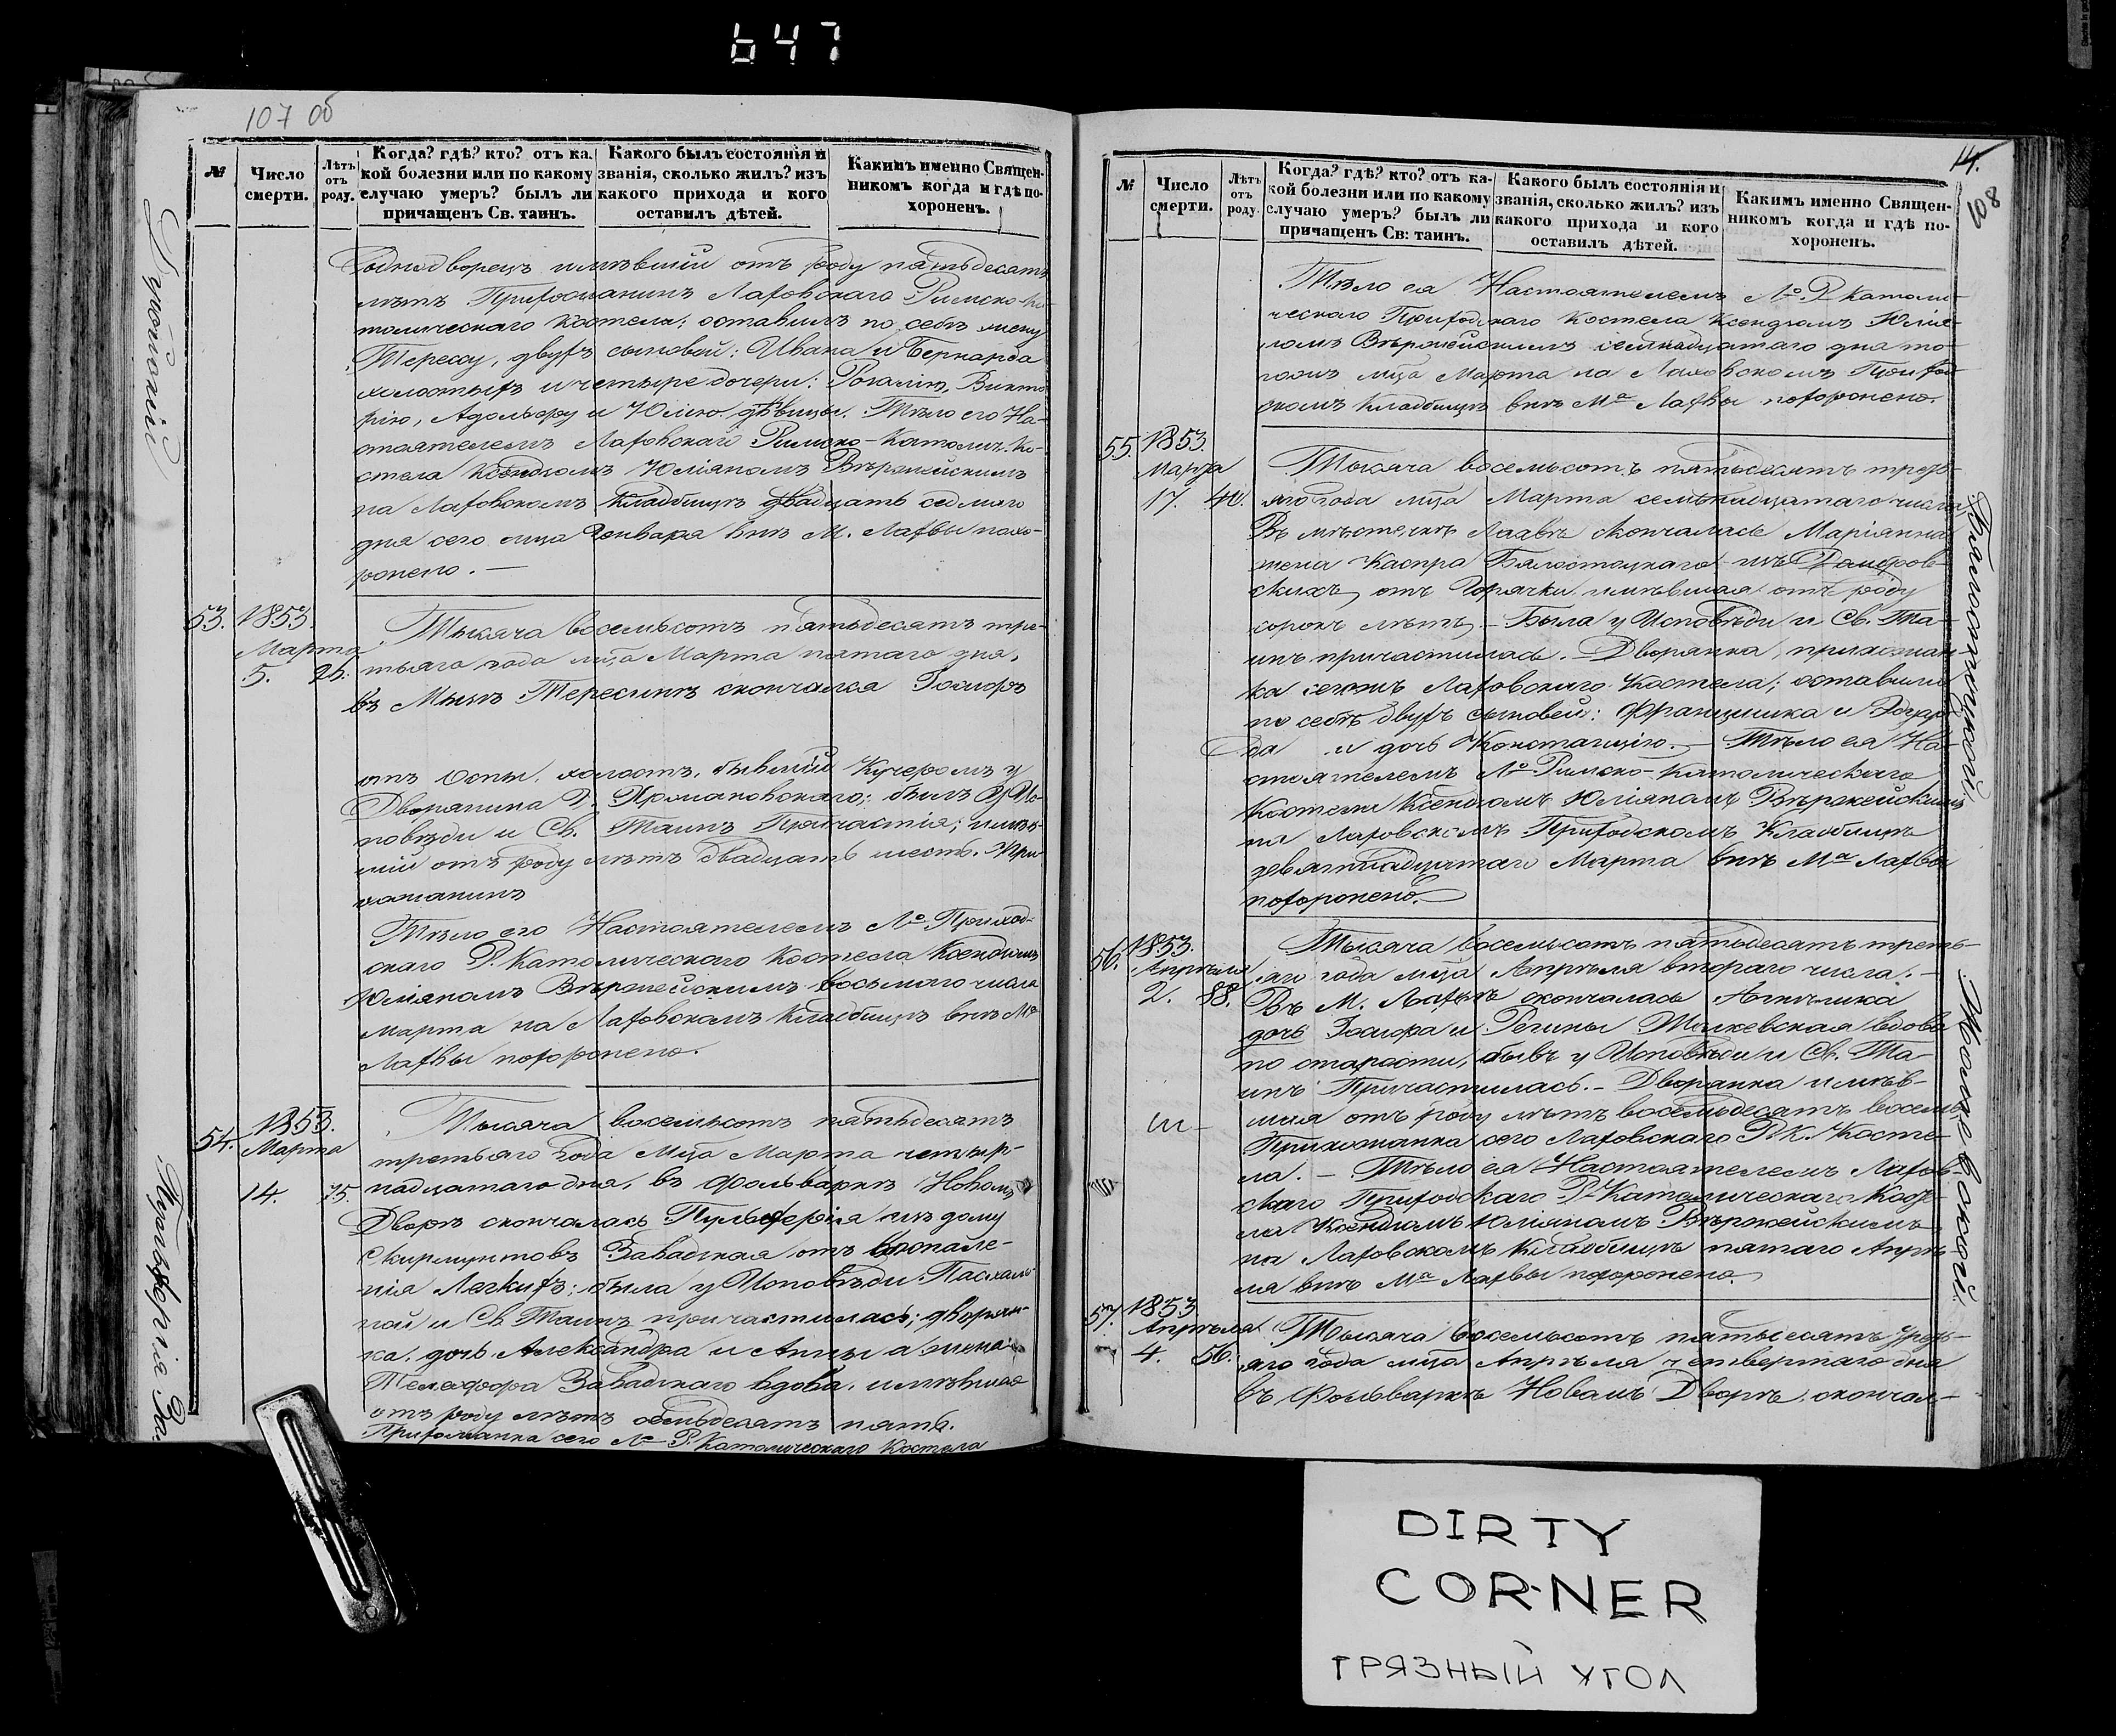 647
107 об
№
Число смерти.
Лѣтъ отъ роду.
Когда? гдѣ? кто? отъ какой болезни или по какому случаю умеръ? былъ ли причащенъ Св. таинъ.
Какого былъ состоянія и званія, сколько жилъ? изъ какого прихода и кого оставилъ дѣтей.
Какимъ именно Священникомъ когда и гдѣ похороненъ.
однодворецъ имѣвшій отъ роду пятьдесятъ
лѣтъ Прихожанинъ Лаховскаго Римско-Ка-
толическаго Костела; оставилъ по себѣ жену
Терессу, двухъ сыновей: Ивана и Бернарда
холостыхъ и четыре дочери: Розалію, Викто-
рію, Адольфу и Юлію дѣвицы. Тѣло его На-
стоятелемъ Лаховскаго Римско-Католич. Ко-
стела Ксендзомъ Юліяномъ Вѣржейскимъ
на Лаховскомъ Кладбищѣ двадцать седмаго
дня сего мца Генваря внѣ М. Лахвы похо-
ронено. —
53.
1853.
Марта
5. 26.
Тысяча восемьсотъ пятьдесятъ тре-
тьяго года мца Марта пятаго дня,
въ Мызѣ Тересинѣ скончался Іосифъ
отъ Оспы, холостъ, бывшій Кучеромъ у
Дворянина
повѣди и Св. Таинъ Причастія; имѣв-
шій отъ роду лѣтъ двадцать шесть. При-
хожанинъ
Тѣло его Настоятелемъ Ло Приход-
скаго Р. Католическаго Костела Ксендзомъ
Юліяномъ Вѣржейскимъ восьмого числа
марта на Лаховскомъ Кладбищѣ внѣ Ма
Лахвы похоронено.
54.
1853.
Марта
14. 75.
Тысяча восемьсотъ пятьдесятъ
третьяго года Мца Марта четыр-
надцатаго дня, въ Фольваркѣ Новомъ
Дворѣ скончалась Пульхерія изъ дому
Скирмунтовъ Завадская отъ воспале-
нія Легкихъ; была у Исповѣди Пасхаль-
ной и Св. Таинъ причастилась; дворян-
ка, дочь Александра и Анны а жена
Телесфора Завадскаго вдова, имѣвшая
отъ роду лѣтъ семьдесятъ пять.
Прихожанка сего Ло Р. Католическаго Костела
14.
108
№
Число смерти.
Лѣтъ отъ роду.
Когда? гдѣ? кто? отъ какой болезни или по какому случаю умеръ? былъ ли причащенъ Св: таинъ.
Какого былъ состоянія и званія, сколько жилъ? изъ какого прихода и кого оставилъ дѣтей.
Какимъ именно Священникомъ когда и гдѣ похороненъ.
Тѣло ея Настоятелемъ Ло Р. Католи-
ческаго Приходскаго Костела Ксендзомъ Юлія-
номъ Вѣржейскимъ семнадцатаго дня то-
гожъ мца Марта на Лаховскомъ Приход-
скомъ Кладбищѣ внѣ Ма Лахвы похоронено.
55.
1853.
Марта
17. 40.
Тысяча восемьсотъ пятьдесятъ треть-
яго года мца Марта семьнадцатаго числа,
Въ мѣстечкѣ Лахвѣ скончалась Маріянна
жена Каспра Бялостоцкаго изъ Домбров-
скихъ, отъ Горячки имѣвшая отъ роду
сорокъ лѣтъ. — Была у Исповѣди и Св. Та-
инъ причастилась. — Дворянка, прихожан-
ка сегожъ Лаховскаго Костела; оставила
по себѣ двухъ сыновей: Францишка и Эдуар-
да и дочь Констанцію. — Тѣло ея На-
стоятелемъ Ло Римско-Католическаго
Костела Ксендзомъ Юліяномъ Вѣржейскимъ
на Лаховскомъ Приходскомъ Кладбищѣ
девятнадцатаго Марта внѣ Ма Лахвы
похоронено.
56.
1853.
Апрѣля
2. 88.
Тысяча восемьсотъ пятьдесятъ треть-
яго года мца Апрѣля втораго числа. —
Въ М. Лахвѣ скончалась Ангелика
дочь Іосифа и Регины Жилкевская вдова
по старости, бывъ у Исповѣди и Св. Та-
инъ Причастилась. — Дворянка имѣв-
шая отъ роду лѣтъ восемьдесятъ восемь,
Прихожанка сего Лаховскаго Р.К. Косте-
ла. — Тѣло ея Настоятелемъ Лахов-
скаго Приходскаго Р-Католическаго Косте-
ла Ксендзомъ Юліяномъ Вѣржейскимъ
на Лаховскомъ Кладбищѣ пятаго Апрѣ-
ля внѣ Ма Лахвы похоронено.
57.
1853.
Апрѣля
4. 56.
Тысяча восемьсотъ пятьдесятъ треть-
яго года мца Апрѣля четвертаго дня
въ Фольваркѣ Новомъ Дворѣ, скончал-
Бялостоцкой.
DIRTY
CORNER
ГРЯЗНЫЙ УГОЛ